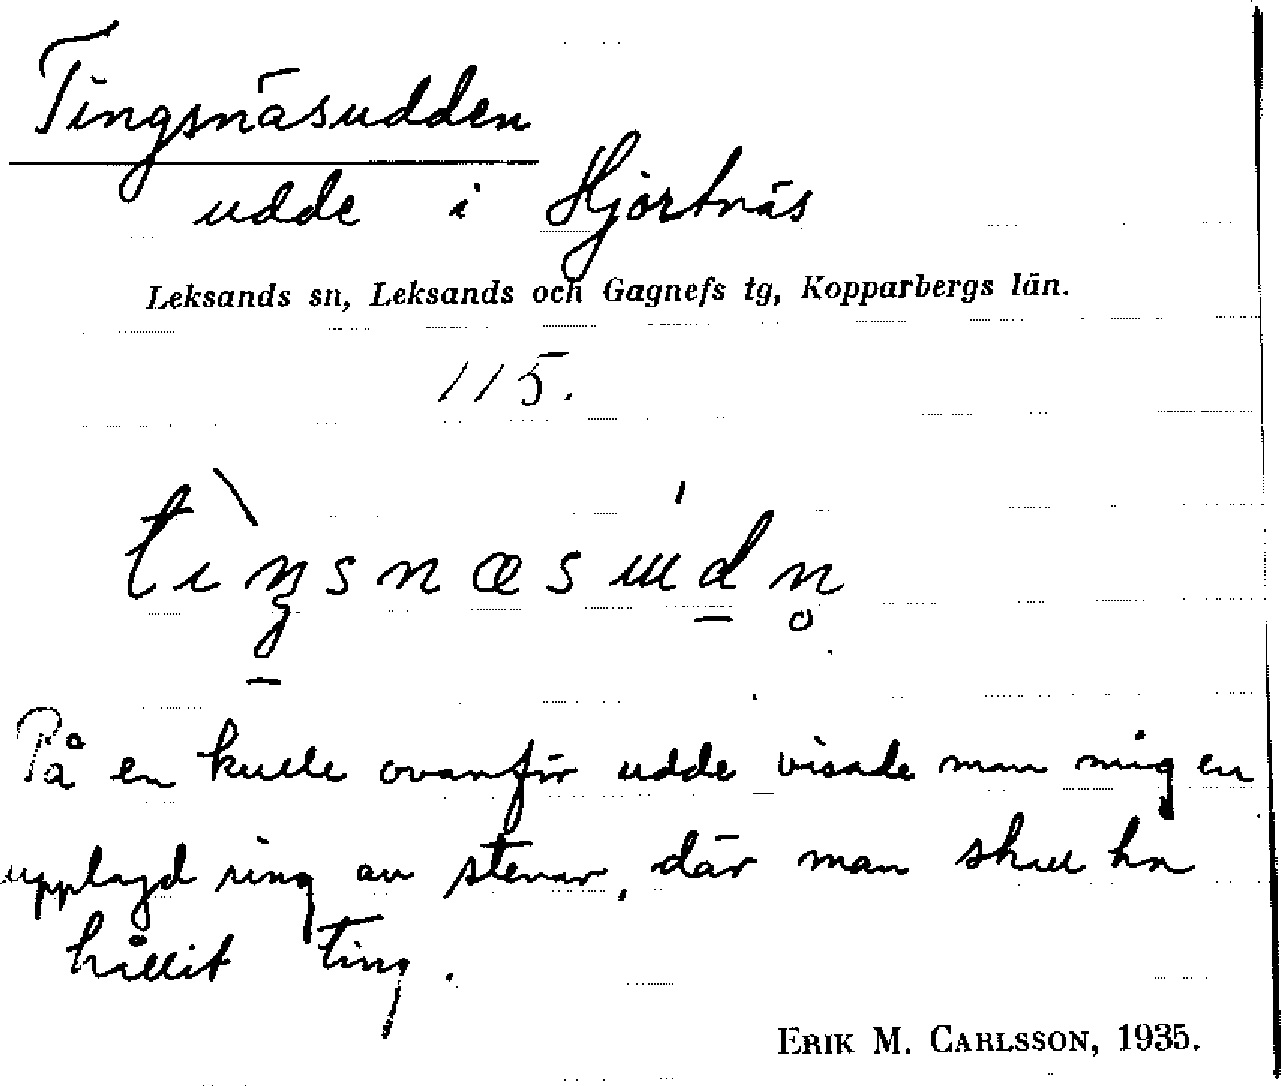 Tingsnäsudden
udde i Hjortnäs
Leksands sn, Leksands och Gagnefs tg, Kopparbergs län.
115.
tìŋsnæsɯ́dn̥
På en kulle ovanför udde visade man mig en
upplagd ring av stenar, där man skull ha
hållit ting.
ERIK M. CARLSSON, 1935.